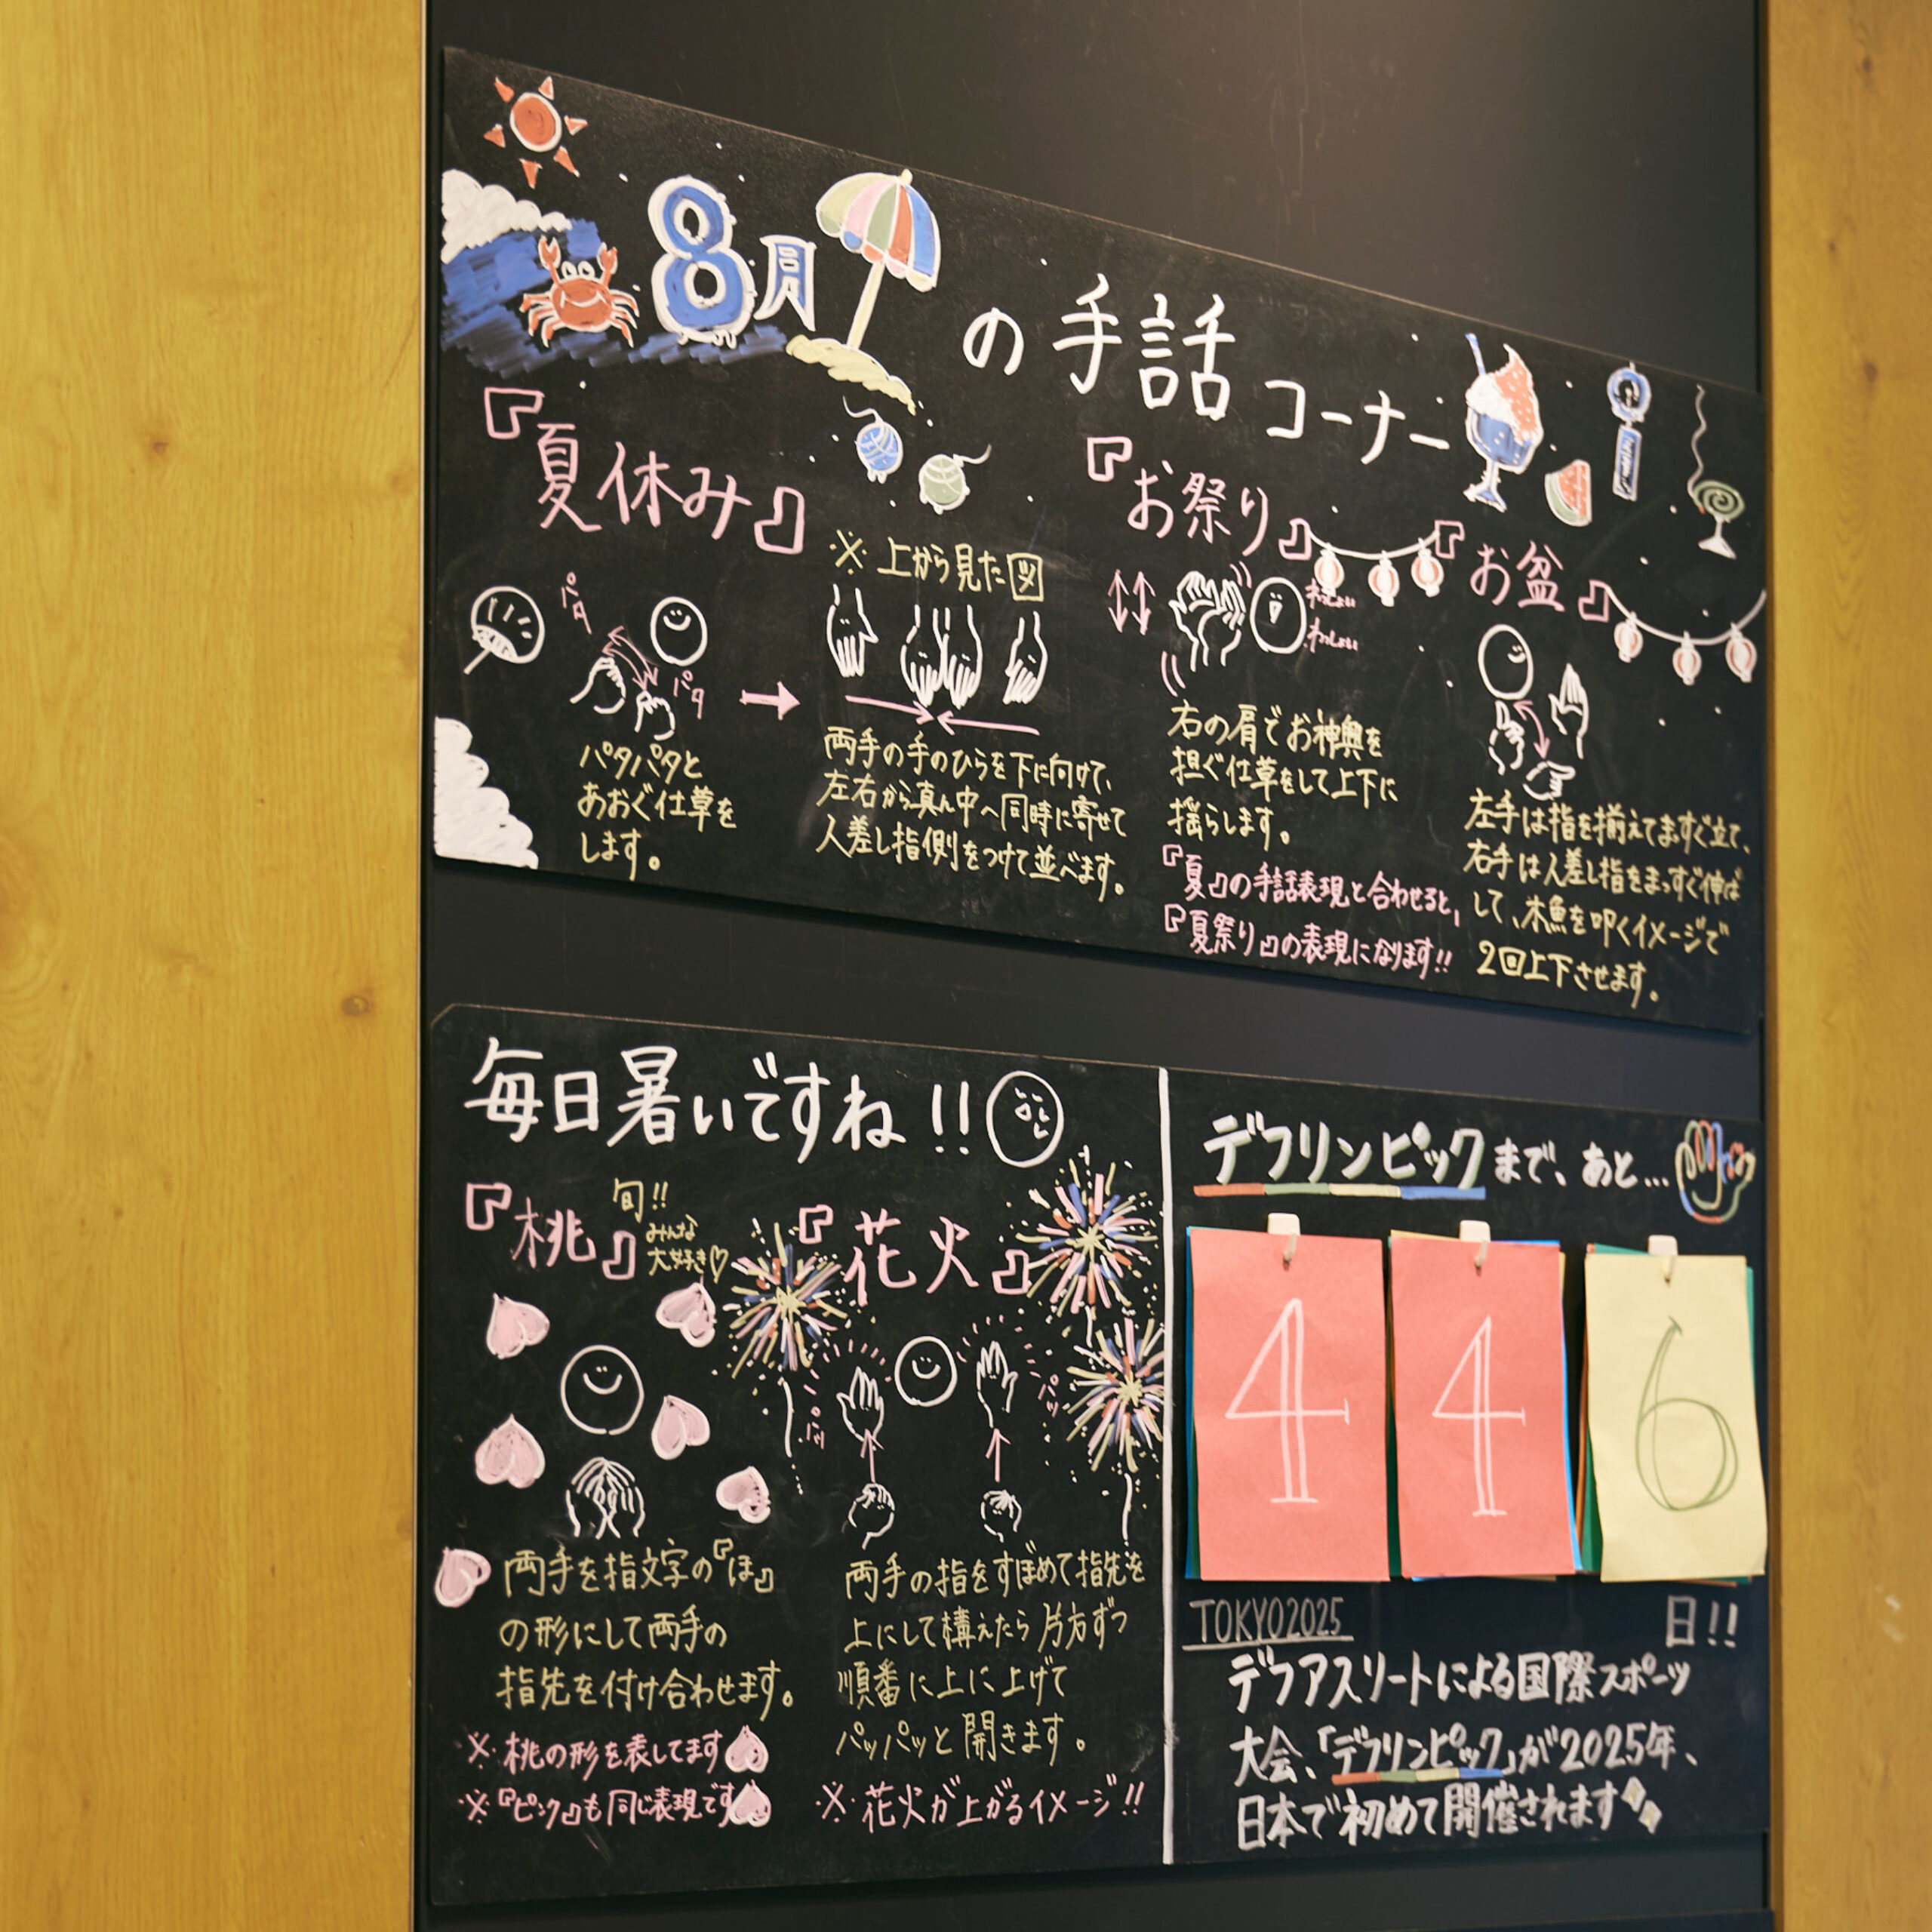 8月の手話コーナー
『夏休み』
パタ
パタ
パタパタと
あおぐ仕草を
します。
※上から見た図
両手の手のひらを下に向けて、
左右から真ん中へ同時に寄せて
人差し指側をつけて並べます。
『お祭り』
わっしょい
わっしょい
右の肩でお神輿を
担ぐ仕草をして上下に
揺らします。
『夏』の手話表現と合わせると、
『夏祭り』の表現になります!!
『お盆』
左手は指を揃えてまっすぐ立て、
右手は人差し指をまっすぐ伸ば
して、木魚を叩くイメージで
2回上下させます。
毎日暑いですね!!
『桃』
旬!!
みんな
大好き♡
両手を指文字の『ほ』
の形にして両手の
指先を付け合わせます。
※桃の形を表してます
※『ピンク』も同じ表現です
『花火』
パッ
パッ
両手の指をすぼめて指先を
上にして構えたら片方ずつ
順番に上に上げて
パッパッと開きます。
※花火が上がるイメージ!!
デフリンピックまで、あと...
4 4 6
日!!
TOKYO2025
デフアスリートによる国際スポーツ
大会、「デフリンピック」が2025年、
日本で初めて開催されます